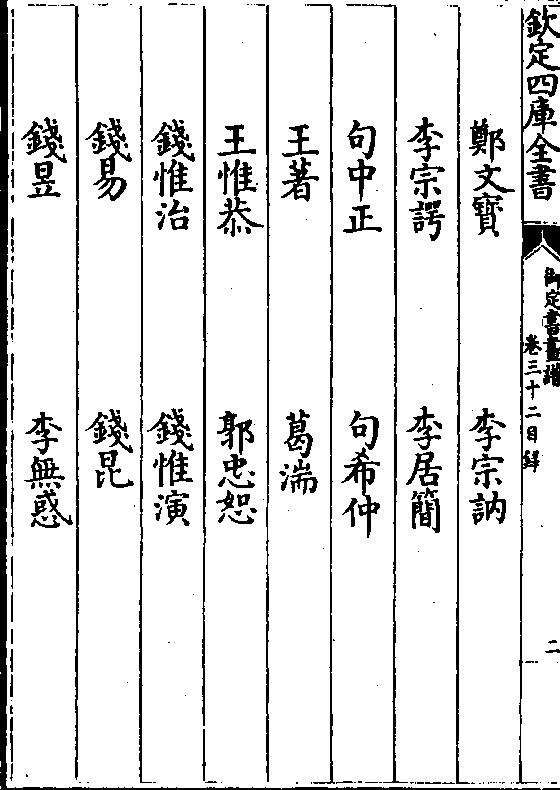 欽定四庫全書
御定書畫譜
卷三十二目錄
二
鄭文寶 李宗訥
李宗諤 李居簡
句中正 句希仲
王著 葛湍
王惟恭 郭忠恕
錢惟治 錢惟演
錢易 錢昆
錢昱 李無惑